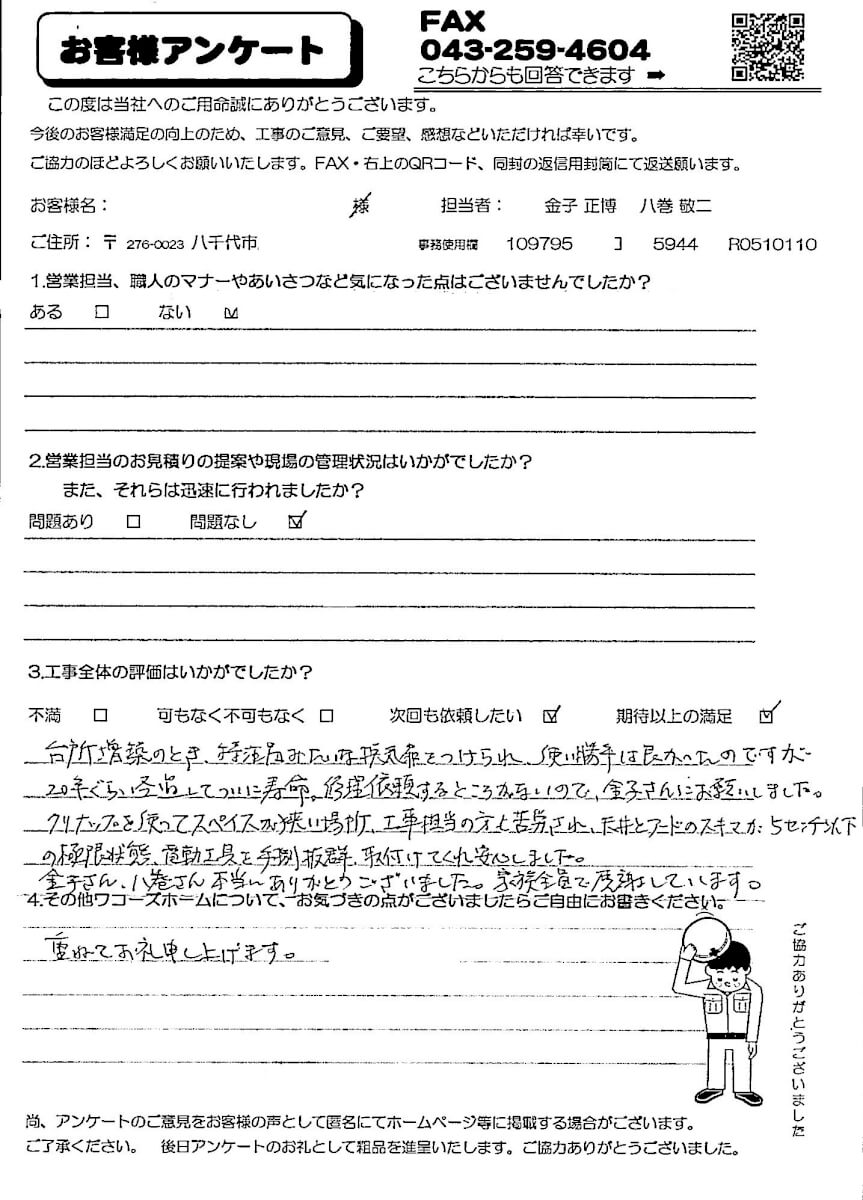 お客様アンケート
FAX
043-259-4604
こちらからも回答できます ➡
この度は当社へのご用命誠にありがとうございます。
今後のお客様満足の向上のため、工事のご意見、ご要望、感想などいただければ幸いです。
ご協力のほどよろしくお願いいたします。FAX・右上のQRコード、同封の返信用封筒にて返送願います。
お客様名： 様 担当者： 金子 正博 八巻 敬二
ご住所：〒 276-0023 八千代市 事務使用欄 109795 ｺ 5944 R0510110
1.営業担当、職人のマナーやあいさつなど気になった点はございませんでしたか？
ある □ ない ☑
2.営業担当のお見積りの提案や現場の管理状況はいかがでしたか？
また、それらは迅速に行われましたか？
問題あり □ 問題なし ☑
3.工事全体の評価はいかがでしたか？
不満 □ 可もなく不可もなく □ 次回も依頼したい ☑ 期待以上の満足 ☑
台所増築のとき、特注品みたいな換気扇をつけられ、使い勝手は良かったのですが
20年ぐらい経過してついに寿命。修理依頼するところがないので、金子さんにお願いしました。
クリナップを使ってスペイスが狭い場所、工事担当の方も苦労され、天井とフードのスキマが5センチ以下
の極限状態、電動工具を手捌抜群、取付けてくれ安心しました。
金子さん、八巻さん本当にありがとうございました。家族全員で感謝しています。
4.その他ワコーズホームについて、お気づきの点がございましたらご自由にお書きください。
重ねてお礼申し上げます。
ご協力ありがとうございました
尚、アンケートのご意見をお客様の声として匿名にてホームページ等に掲載する場合がございます。
ご了承ください。 後日アンケートのお礼として粗品を進呈いたします。ご協力ありがとうございました。